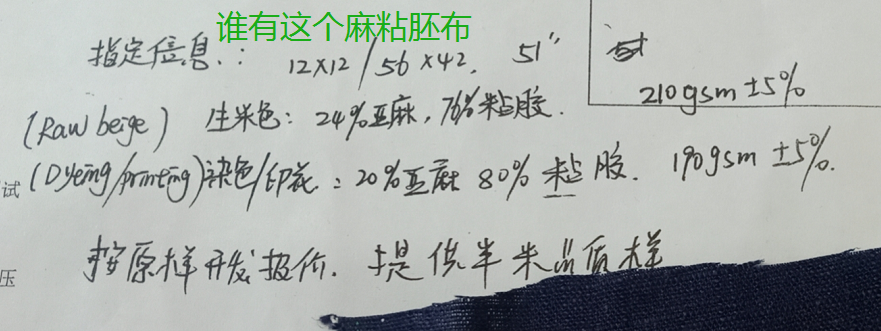 谁有这个麻粘胚布
指定信息： 12×12/56×42. 51"
210gsm ±5%
(Raw beige) 生米色: 24%亚麻, 76%粘胶.
试 (Dyeing/printing)染色/印花: 20%亚麻 80%粘胶. 190gsm ±5%.
按原样开发报价. 提供半米品质样
压